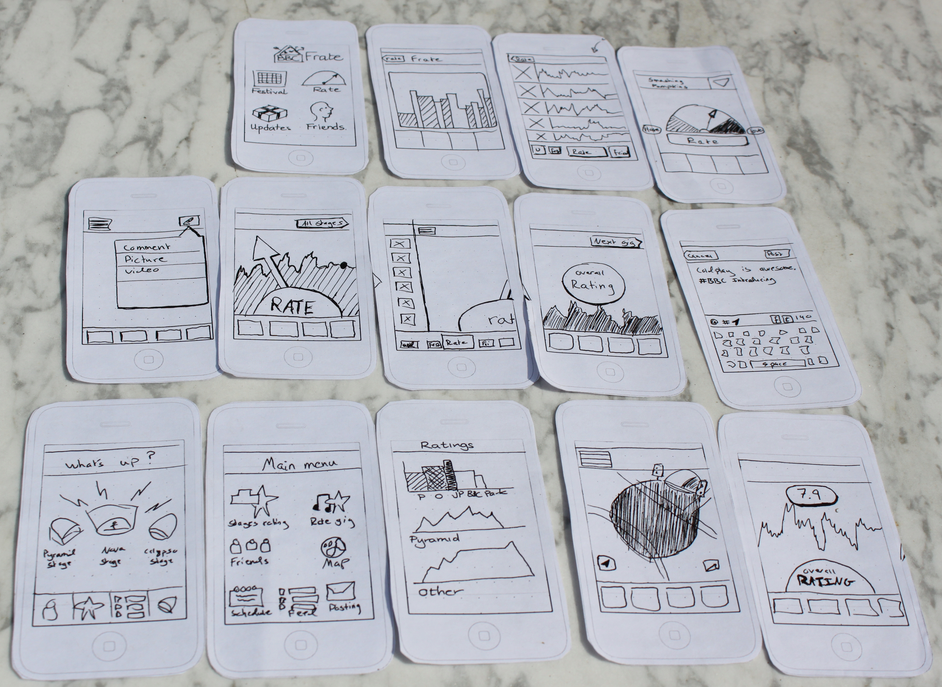 BBC Frate
Festival Rate
Updates Friends
Rate Frate
Rate
Rate
Something
Rate
Comment
Picture
Video
All stages
RATE
rat
Rate
Next gig
Overall
Rating
Cancel Post
Coldplay is awesome.
#BBC Introducing
@ # 140
Space
What's up?
Pyramid
stage
Nova
stage
calypso
stage
Main menu
Stages rating Rate gig
Friends Map
Schedule Feed Posting
Ratings
P O JP BBC Park
Pyramid
Other
7.9
overall
RATING